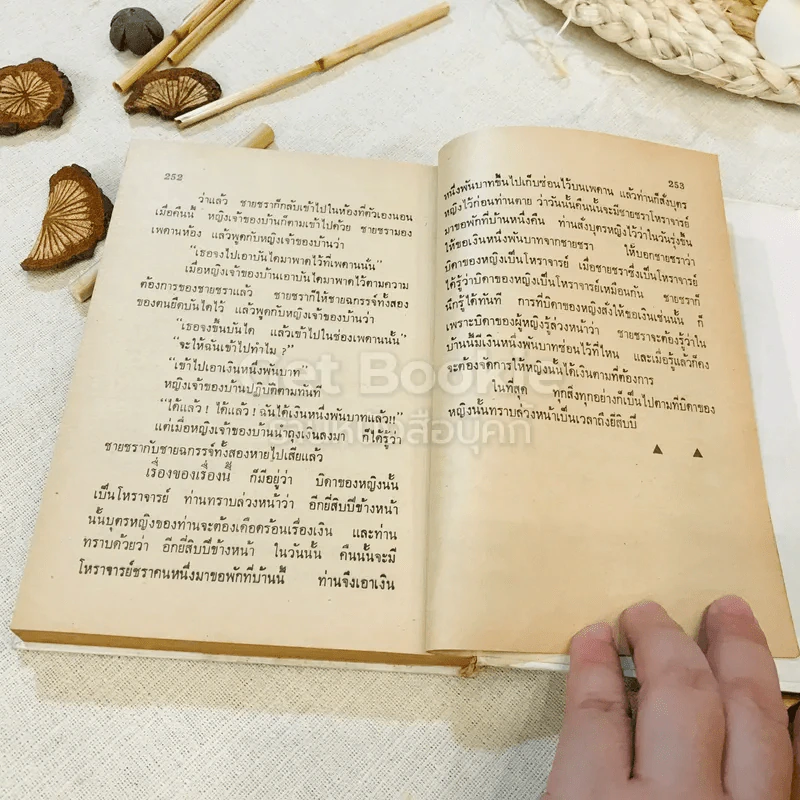 252
ว่าแล้ว ชายชราก็กลับเข้าไปในห้องที่ตัวเองนอน
เมื่อคืนนี้ หญิงเจ้าของบ้านก็ตามเข้าไปด้วย ชายชรามอง
เพดานห้อง แล้วพูดกับหญิงเจ้าของบ้านว่า
“เธอจงไปเอาบันไดมาพาดไว้ที่เพดานนั้น”
เมื่อหญิงเจ้าของบ้านเอาบันไดมาพาดไว้ตามความ
ต้องการของชายชราแล้ว ชายชราก็ให้ชายฉกรรจ์ทั้งสอง
ของตนยึดบันไดไว้ แล้วพูดกับหญิงเจ้าของบ้านว่า
“เธอจงขึ้นบันได แล้วเข้าไปในช่องเพดานนั้น”
“จะให้ฉันเข้าไปทำไม ?”
“เข้าไปเอาเงินหนึ่งพันบาท”
หญิงเจ้าของบ้านปฏิบัติตามทันที
“ได้แล้ว ! ได้แล้ว ! ฉันได้เงินหนึ่งพันบาทแล้ว!!”
แต่เมื่อหญิงเจ้าของบ้านนำถุงเงินลงมา ก็ได้รู้ว่า
ชายชรากับชายฉกรรจ์ทั้งสองหายไปเสียแล้ว
เรื่องของเรื่องนี้ ก็มีอยู่ว่า บิดาของหญิงนั้น
เป็นโหราจารย์ ท่านทราบล่วงหน้าว่า อีกยี่สิบปีข้างหน้า
นั้นบุตรหญิงของท่านจะต้องเดือดร้อนเรื่องเงิน และท่าน
ทราบด้วยว่า อีกยี่สิบปีข้างหน้า ในวันนั้น คืนนั้นจะมี
โหราจารย์ชราคนหนึ่งมาขอพักที่บ้านนี้ ท่านจึงเอาเงิน
253
หนึ่งพันบาทขึ้นไปเก็บซ่อนไว้บนเพดาน แล้วท่านก็สั่งบุตร
หญิงไว้ก่อนท่านตาย ว่าวันนั้นคืนนั้นจะมีชายชราโหราจารย์
มาขอพักที่บ้านหนึ่งคืน ท่านสั่งบุตรหญิงไว้ว่าในวันรุ่งขึ้น
ให้ขอเงินหนึ่งพันบาทจากชายชรา ให้บอกชายชราว่า
บิดาของหญิงเป็นโหราจารย์ เมื่อชายชราซึ่งเป็นโหราจารย์
ได้รู้ว่าบิดาของหญิงเป็นโหราจารย์เหมือนกัน ชายชราก็
นึกรู้ได้ทันที การที่บิดาของหญิงสั่งให้ขอเงินเช่นนั้น ก็
เพราะบิดาของผู้หญิงรู้ล่วงหน้าว่า ชายชราจะต้องรู้ว่าใน
บ้านนี้มีเงินหนึ่งพันบาทซ่อนไว้ที่ไหน และเมื่อรู้แล้วก็คง
จะต้องจัดการให้หญิงนั้นได้เงินตามที่ต้องการ
ในที่สุด ทุกสิ่งทุกอย่างก็เป็นไปตามที่บิดาของ
หญิงนั้นทราบล่วงหน้าเป็นเวลาถึงยี่สิบปี